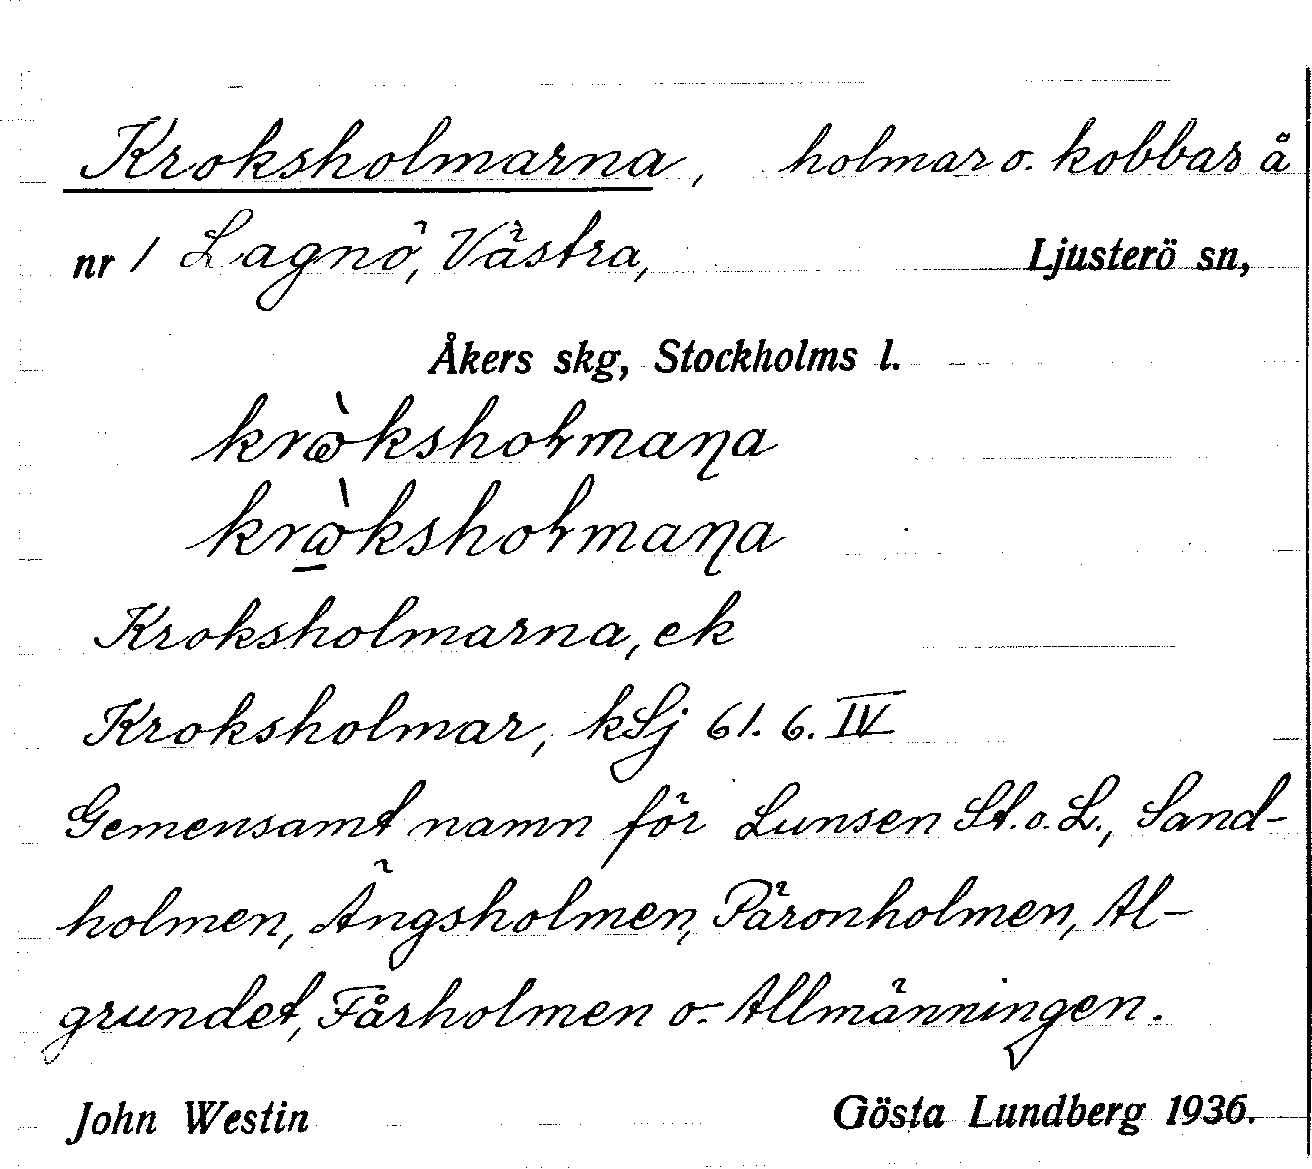 Kroksholmarna, holmar o. kobbar å
nr 1 Lagnö, Västra, Ljusterö sn,
Åkers skg, Stockholms l.
krὼksholmaɳa
krὼ̱ksholmaɳa
Kroksholmarna, ek
Kroksholmar, kLj 61. 6. IV
Gemensamt namn för Lunsen St. o. L., Sand-
holmen, Ängsholmen, Päronholmen, Al-
grundet, Fårholmen o. Allmänningen.
John Westin Gösta Lundberg 1936.